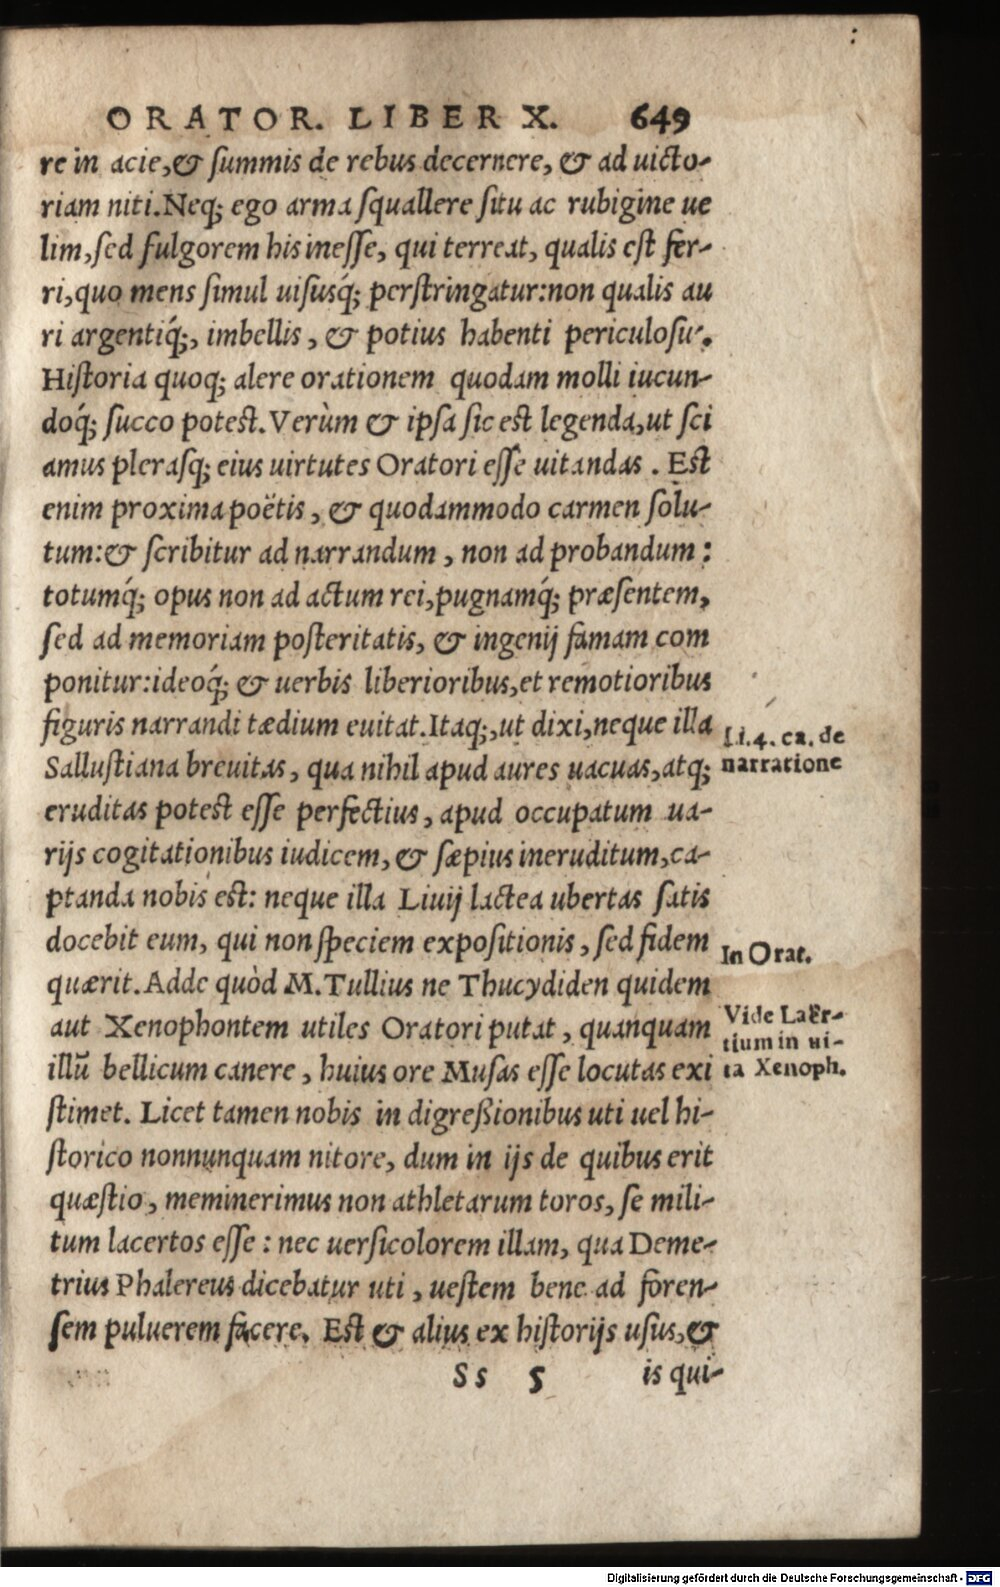 ORATOR. LIBER X. 649
re in acie,& ſummis de rebus decernere, & ad uicto-
riam niti. Neq; ego arma ſquallere ſitu ac rubigine ue
lim, ſed fulgorem his ineſſe, qui terreat, qualis eſt fer-
ri, quo mens ſimul uiſusq́; perſtringatur: non qualis au
ri argentiq́;, imbellis, & potius habenti periculoſu'.
Hiſtoria quoq; alere orationem quodam molli iucun-
doq́; ſucco poteſt. Verùm & ipſa ſic eſt legenda, ut ſci
amus plerasq; eius uirtutes Oratori eſſe uitandas. Eſt
enim proxima poëtis, & quodammodo carmen ſolu-
tum: & ſcribitur ad narrandum, non ad probandum:
totumq́; opus non ad actum rei, pugnamq́; præſentem,
ſed ad memoriam poſteritatis, & ingenij famam com
ponitur: ideoq́; & uerbis liberioribus, et remotioribus
figuris narrandi tædium euitat. Itaq;, ut dixi, neque illa
Salluſtiana breuitas, qua nihil apud aures uacuas, atq;
eruditas poteſt eſſe perfectius, apud occupatum ua-
rijs cogitationibus iudicem, & ſæpius ineruditum, ca-
ptanda nobis eſt: neque illa Liuij lactea ubertas ſatis
docebit eum, qui non ſpeciem expoſitionis, ſed fidem
quærit. Adde quòd M. Tullius ne Thucydiden quidem
aut Xenophontem utiles Oratori putat, quanquam
illū bellicum canere, huius ore Muſas eſſe locutas exi
ſtimet. Licet tamen nobis in digreßionibus uti uel hi-
ſtorico nonnunquam nitore, dum in ijs de quibus erit
quæſtio, meminerimus non athletarum toros, ſe mili-
tum lacertos eſſe: nec uerſicolorem illam, qua Deme-
trius Phalereus dicebatur uti, ueſtem bene ad foren-
ſem puluerem facere. Eſt & alius ex hiſtorijs uſus, &
Ss 5 is qui-
Li. 4. ca. de
narratione
In Orat.
Vide Laër-
tium in ui-
ta Xenoph.
Digitalisierung gefördert durch die Deutsche Forschungsgemeinschaft - DFG